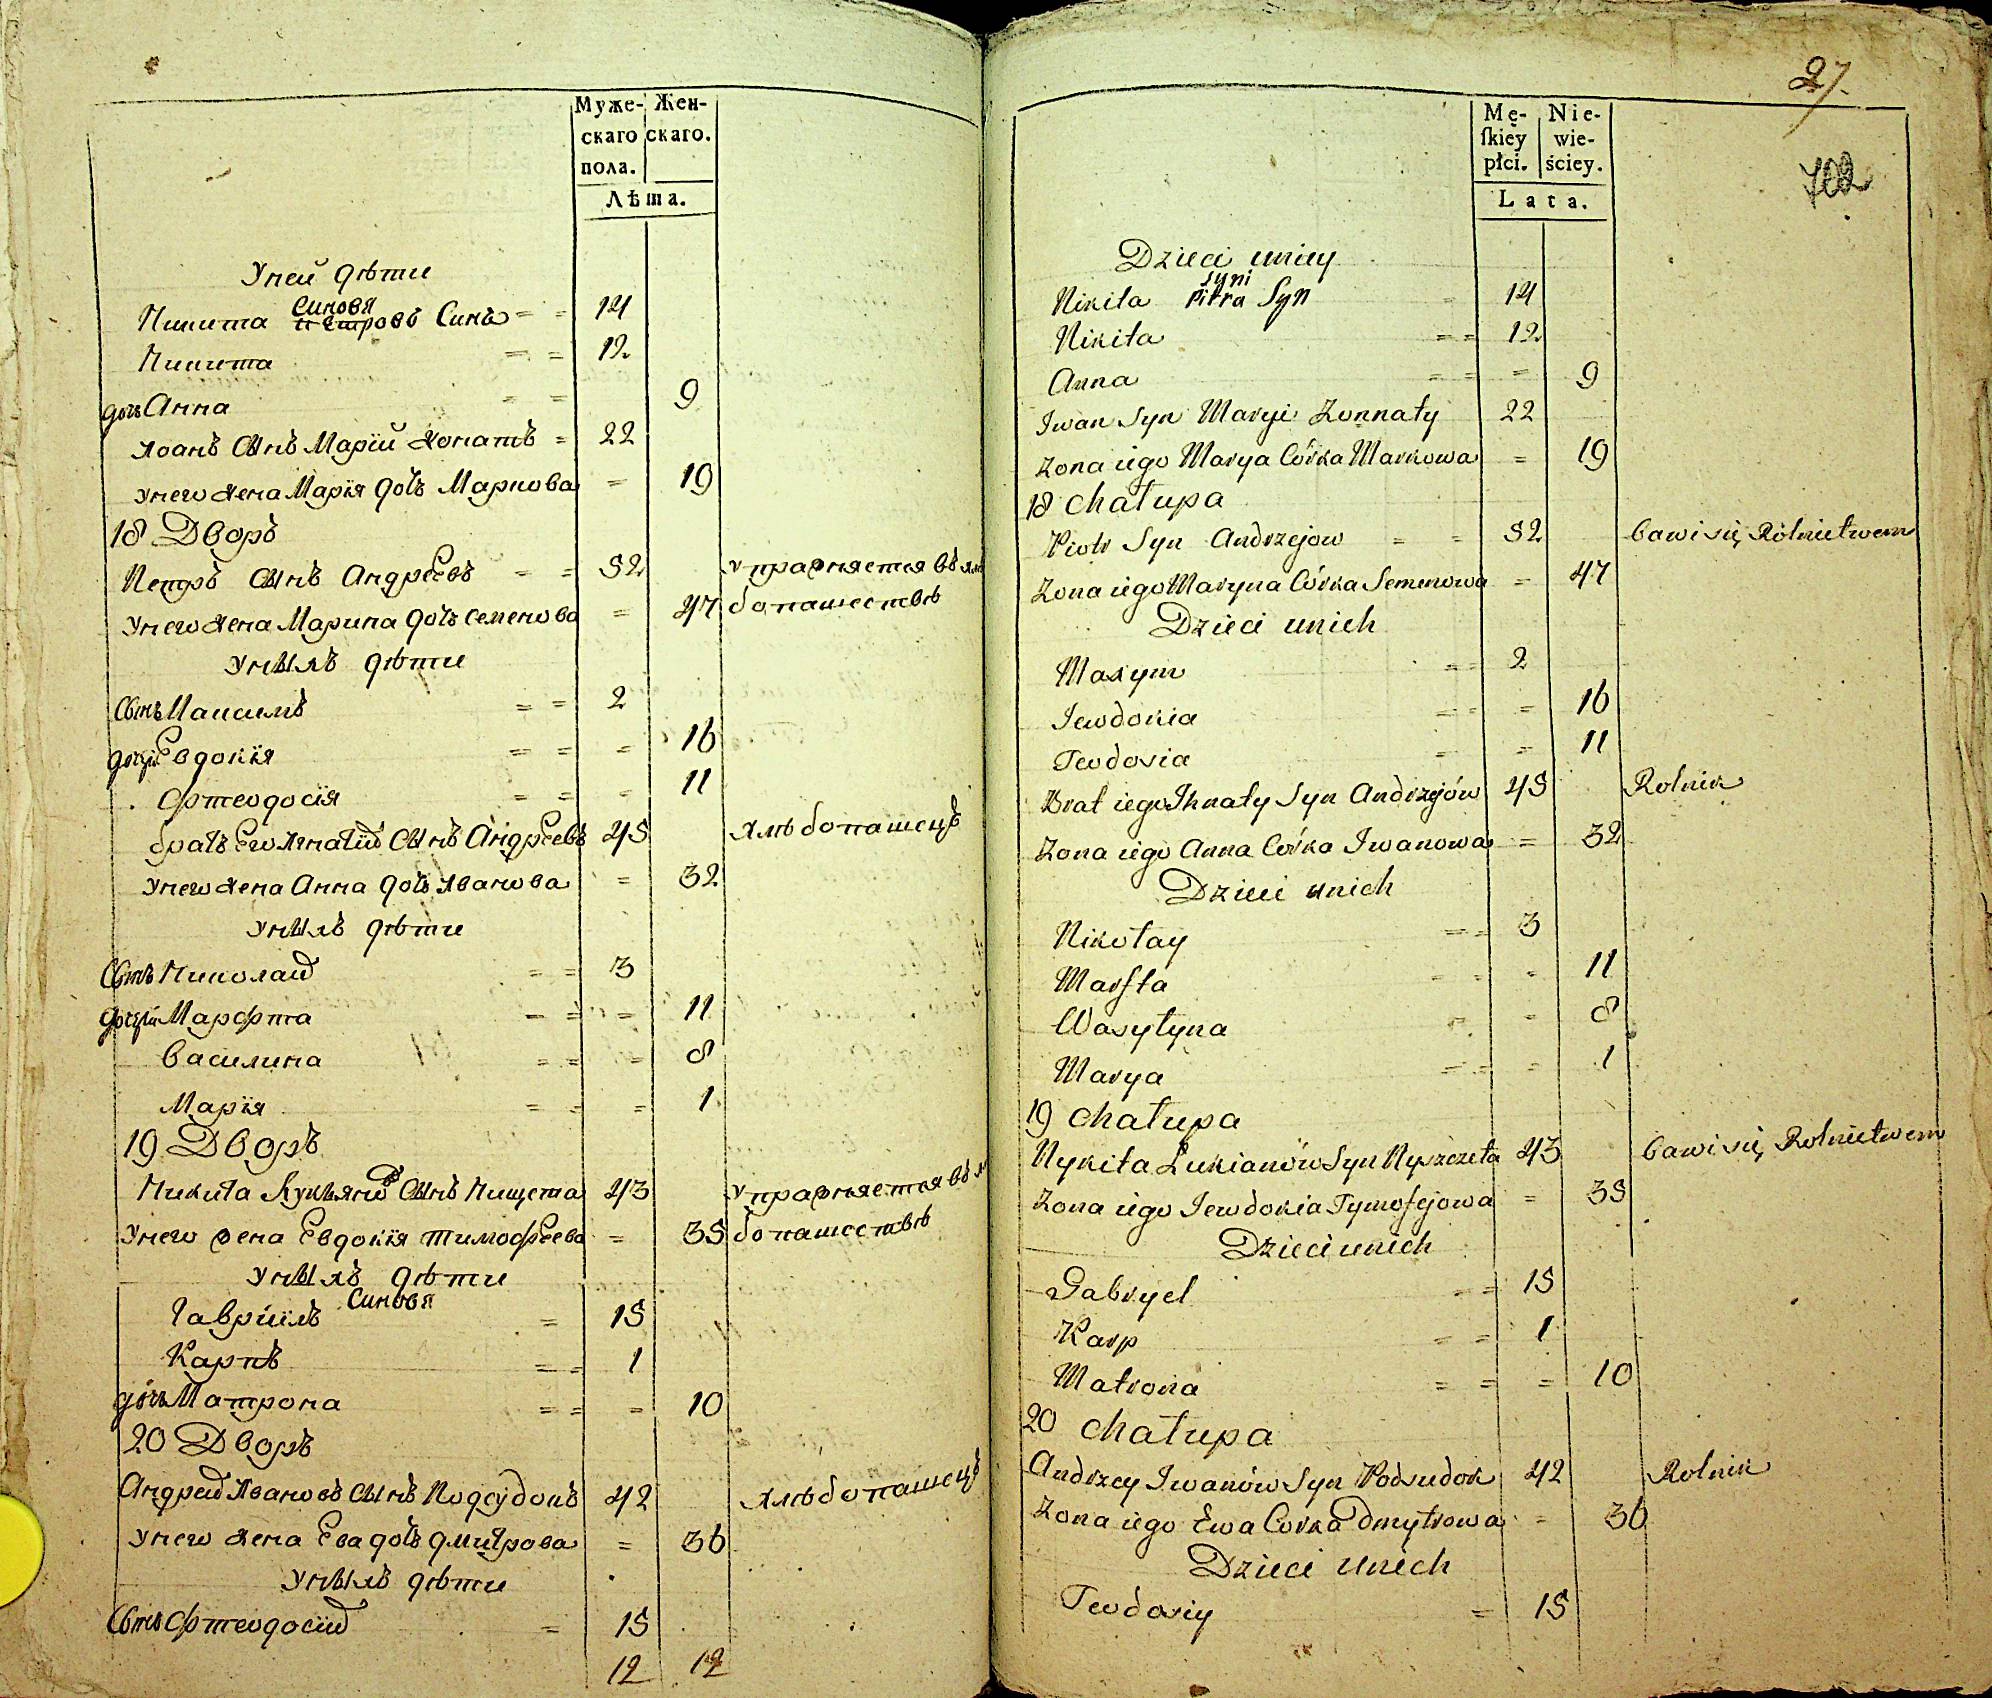 Муже- Жен-
скаго скаго.
пола.
Лѣта.
Унеи дѣти
синовя
Никита Петровъ Синъ = = 14
Никита = = 12
дочь Анна = = 9
Іоанъ Сынъ Маріи Жонатъ = 22
унего жена Марія дочь Маркова = 19
18 Дворъ
Петръ Сынъ Андреевъ = = 52 упражняется въ хлѣ
унего жена Марина дочь Семенова = 47 бопашествѣ
унихъ дѣти
Сынъ Максимъ = = 2
дочери Евдокія = = = 16
Фтеодосія = = = 11
братъ Его Игнатій Сынъ Андреевъ 45 Хлѣбопашецъ
унего жена Анна дочь Иванова = 32
унихъ дѣти
Сынъ Николай = = 3
дочери Марфта = = = 11
Василина = = = 8
Марія = = = 1
19 Дворъ
Никита Лукьяновъ Сынъ Нищета 43 упражняется въ х
унего жена Евдокія Тимофеева = 35 бопашествѣ
унихъ дѣти
синовя
Гавріилъ = 15
Карпъ = = 1
дочь Матрона = = = 10
20 Дворъ
Андрей Ивановъ сынъ Подсудокъ 42 Хлѣбопашецъ
унего жена Ева дочь Дмитрова = 36
унихъ дѣти
Сынъ Фтеодосій = 15
12 12
27.
702
Mę- Nie-
ſkiey wie-
płci. ściey.
Lata.
Dzieci uniey
syni
Nikita Pitra Syn = 14
Nikita = = 12
Anna = = = 9
Iwan Syn Maryi Żonnaty 22
Żona iego Marya Córka Markowa = 19
18 Chałupa
Piotr Syn Andrzejow = = 52 bawi się Rólnictwem
Żona iego Maryna Córka Semenowa = 47
Dzieci unich
Maxym = = 2
Jewdokia = = = 16
Teodosia = = 11
Brat iego Ihnaty Syn Andrzejów 45 Rolnik
Żona iego Anna Córka Iwanowa = 32
Dzieci unich
Nikołay = = 3
Marfta = = = 11
Wasyłyna = = 8
Marya = = = 1
19 Chałupa
Nykita Łukianów Syn Nyszczeta 43 bawi się Rolnictwem
Żona iego Jewdokia Tymofejowa = 35
Dzieci unich
Gabryel = = 15
Karp = = 1
Matrona = = = 10
20 Chałupa
Andrzey Iwanów Syn Podsudok 42 Rolnik
Żona iego Ewa Corka Dmytrowa = 36
Dzieci unich
Teodosiy = 15